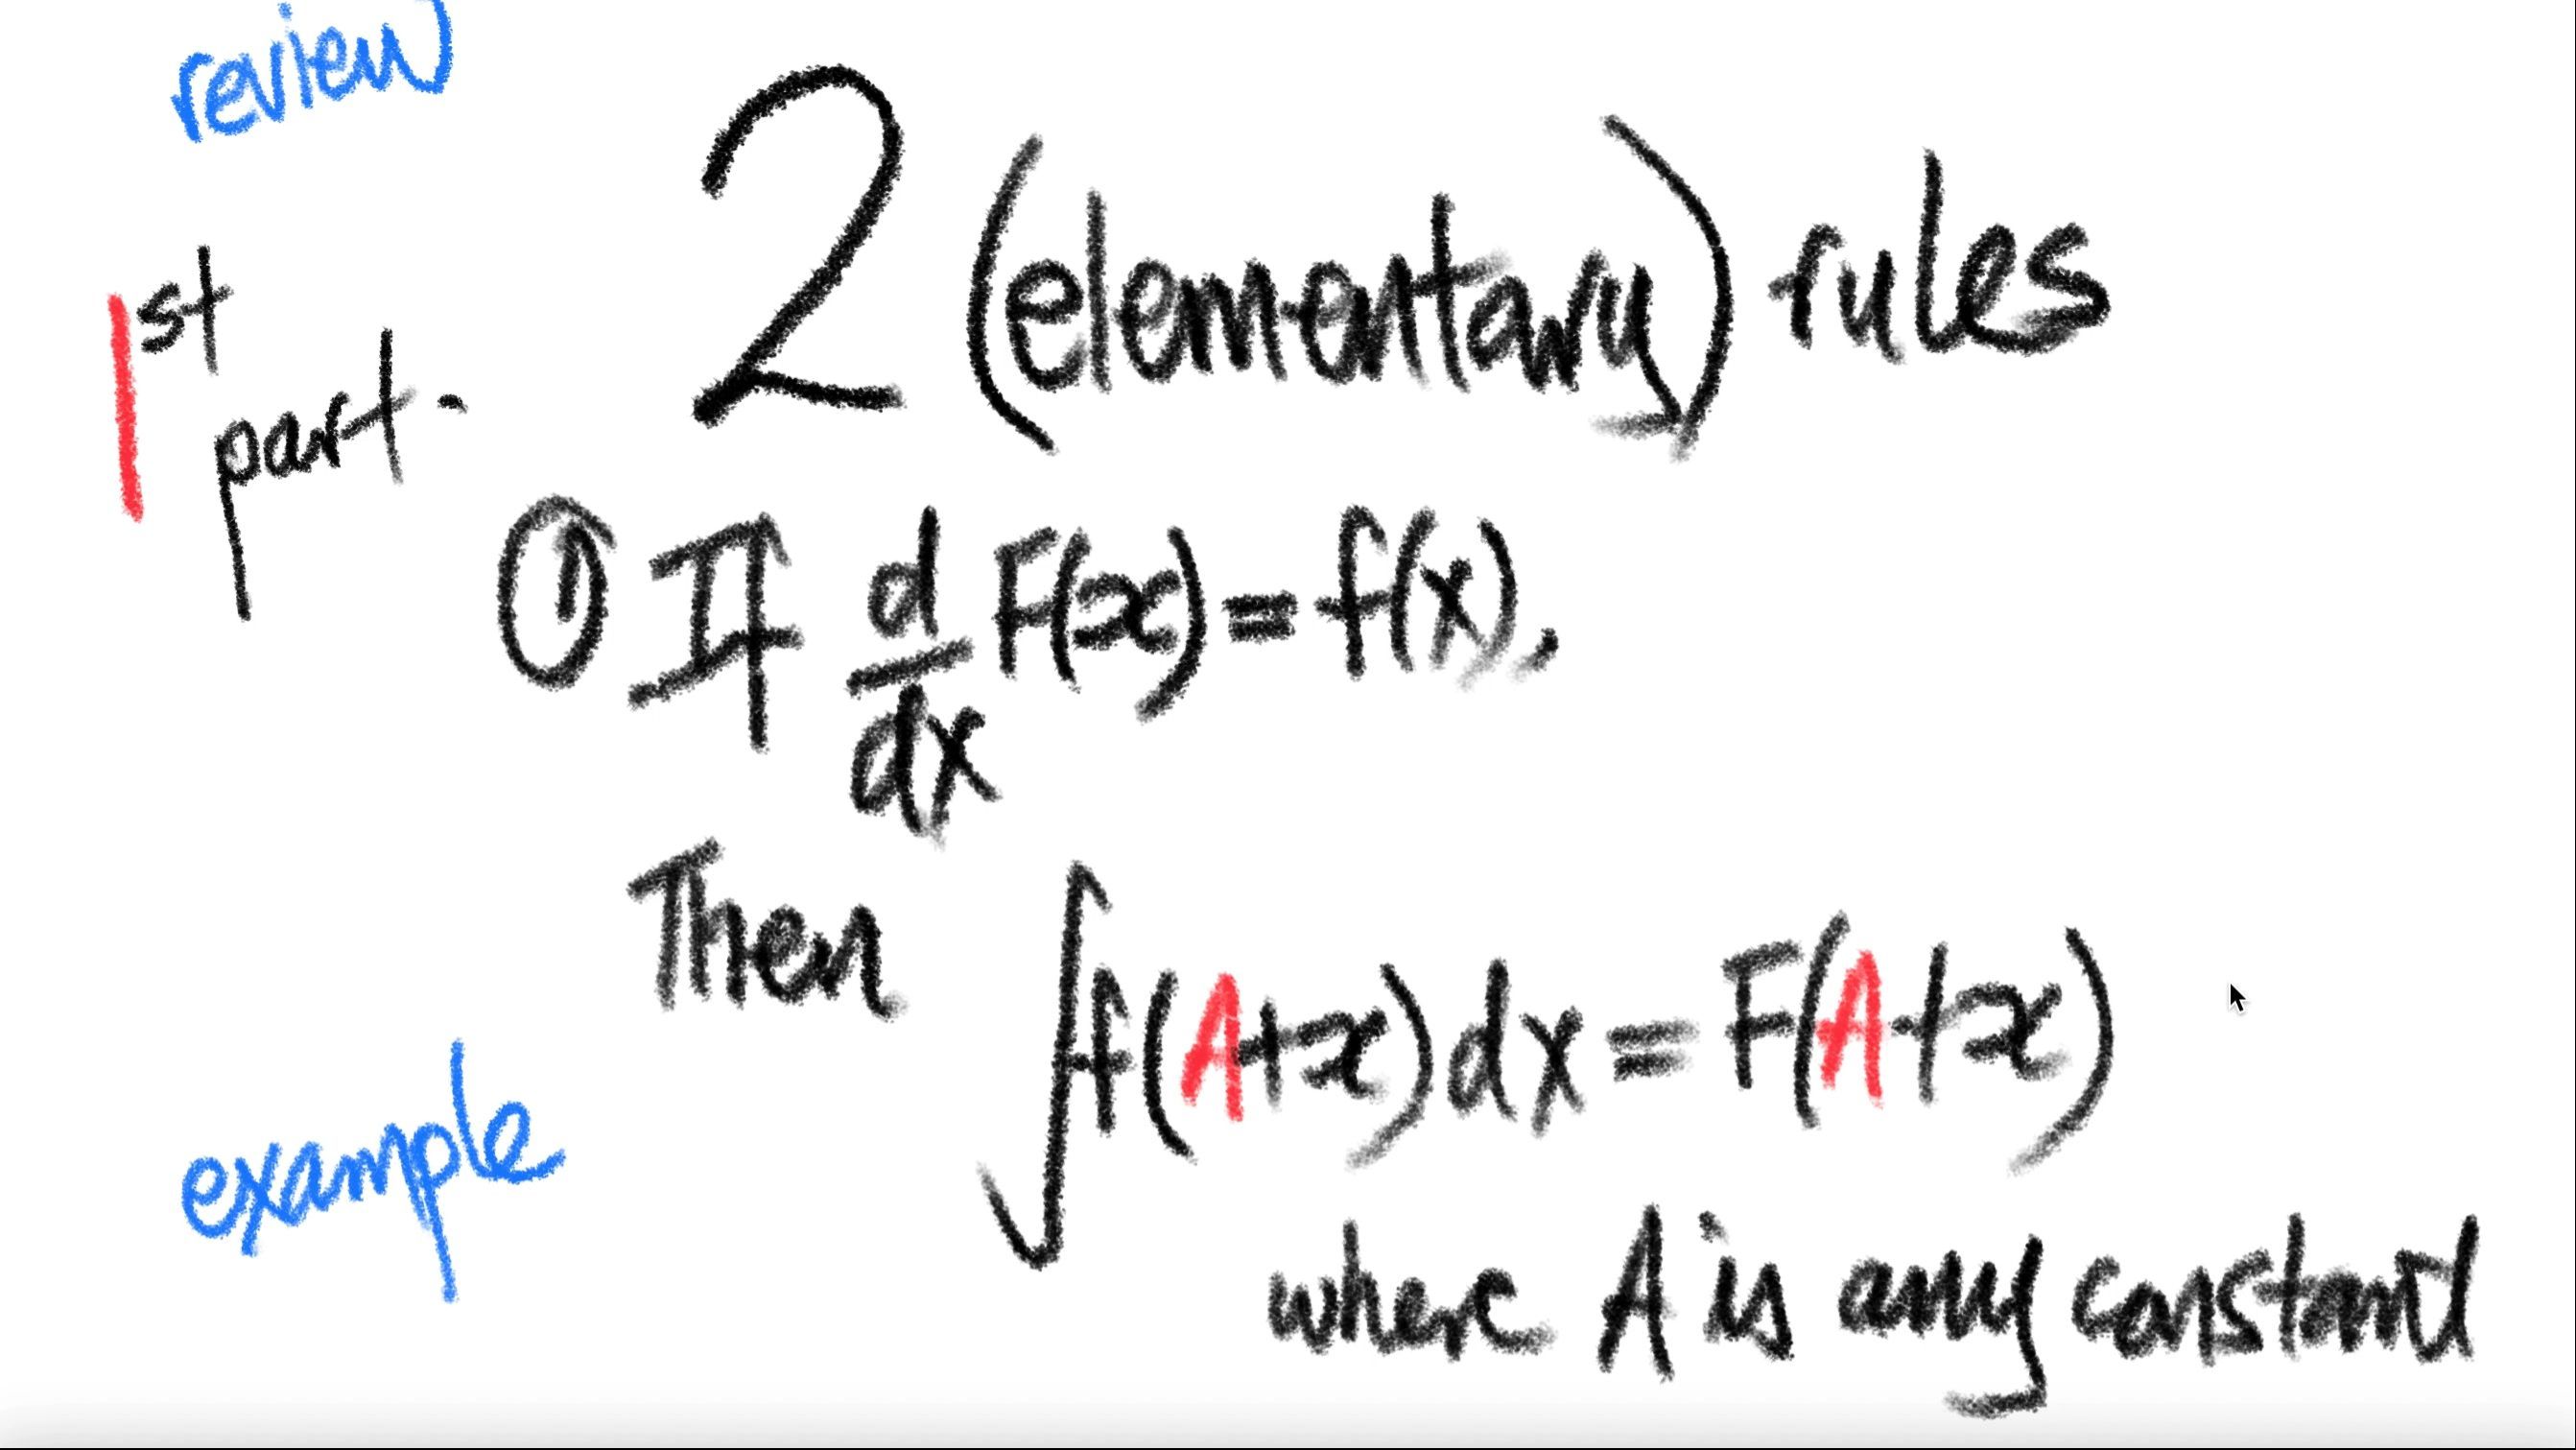 review
2 (elementary) rules
1st part.
① If d/dx F(x) = f(x),
Then ∫f(A+x)dx = F(A+x)
example
where A is any constant